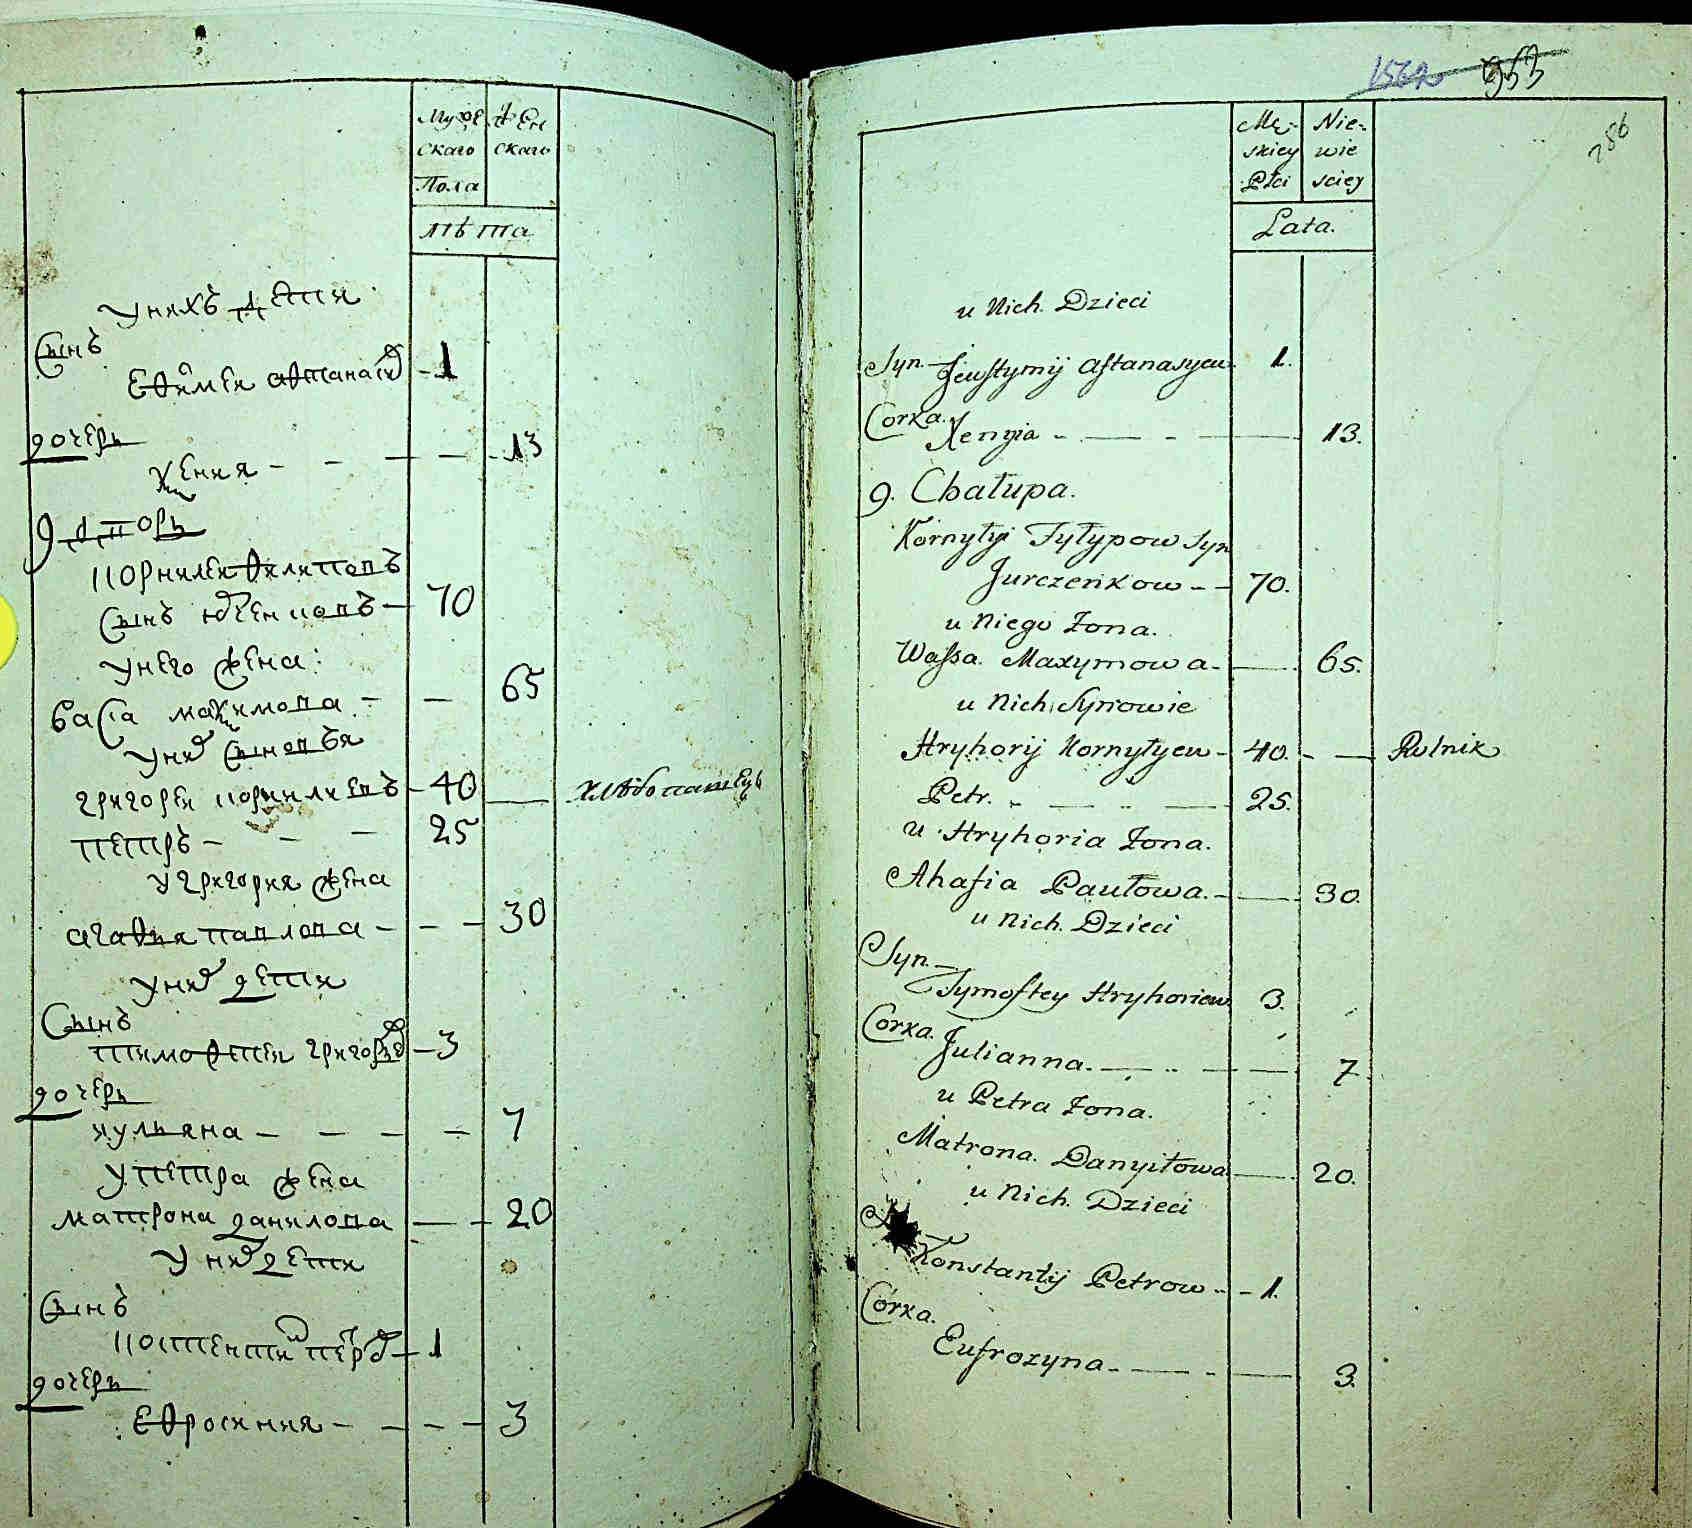 Муже
скаго
Пола
Жен
скаго
лѣта
унихъ дети
Сынъ
Ефимеи афтанасіе - 1
дочерь
Ксения - - - - - 13
9 дворъ
Корнилеи Филиповъ
Сынъ Юрченковъ - 70
унего жена:
Васса Максимова - - 65
уних Сыновья
Григореи Корниліевъ - 40 хлѣбопашецъ
Петръ - - - 25
у Григория жена
Агафия Павлова - - - 30
уних дети
Сынъ
Тимофтеи Григорье - 3
дочерь
Иульяна - - - - 7
у Петра жена
Матрона Данилова - - 20
у них дети
Сынъ
Костентин Петро - 1
дочерь
Ефросиния - - - - 3
1562 953
286
Mę-
skiey
Płci
Nie-
wie
sciey
Lata.
u Nich. Dzieci
Syn - Jewstymij Aftanasyew 1.
Corka.
Xenyia - - - 13.
9. Chałupa.
Kornyłyi Fyłypow Syn
Jurczenkow - - 70.
u Niego Żona.
Wassa. Maxymowa - 65.
u Nich Synowie
Hryhorij Kornyłyew - 40. - - Rolnik
Petr. - - - 25.
u Hryhoria Żona.
Ahafia Pawłowa. - 30.
u Nich. Dzieci
Syn. -
Tymoftey Hryhoriew 3.
Corka.
Julianna. - - - 7
u Petra Żona.
Matrona. Danyiłowa - 20.
u Nich. Dzieci
Konstantij Petrow - - 1.
Córka.
Eufrozyna - - - 3.